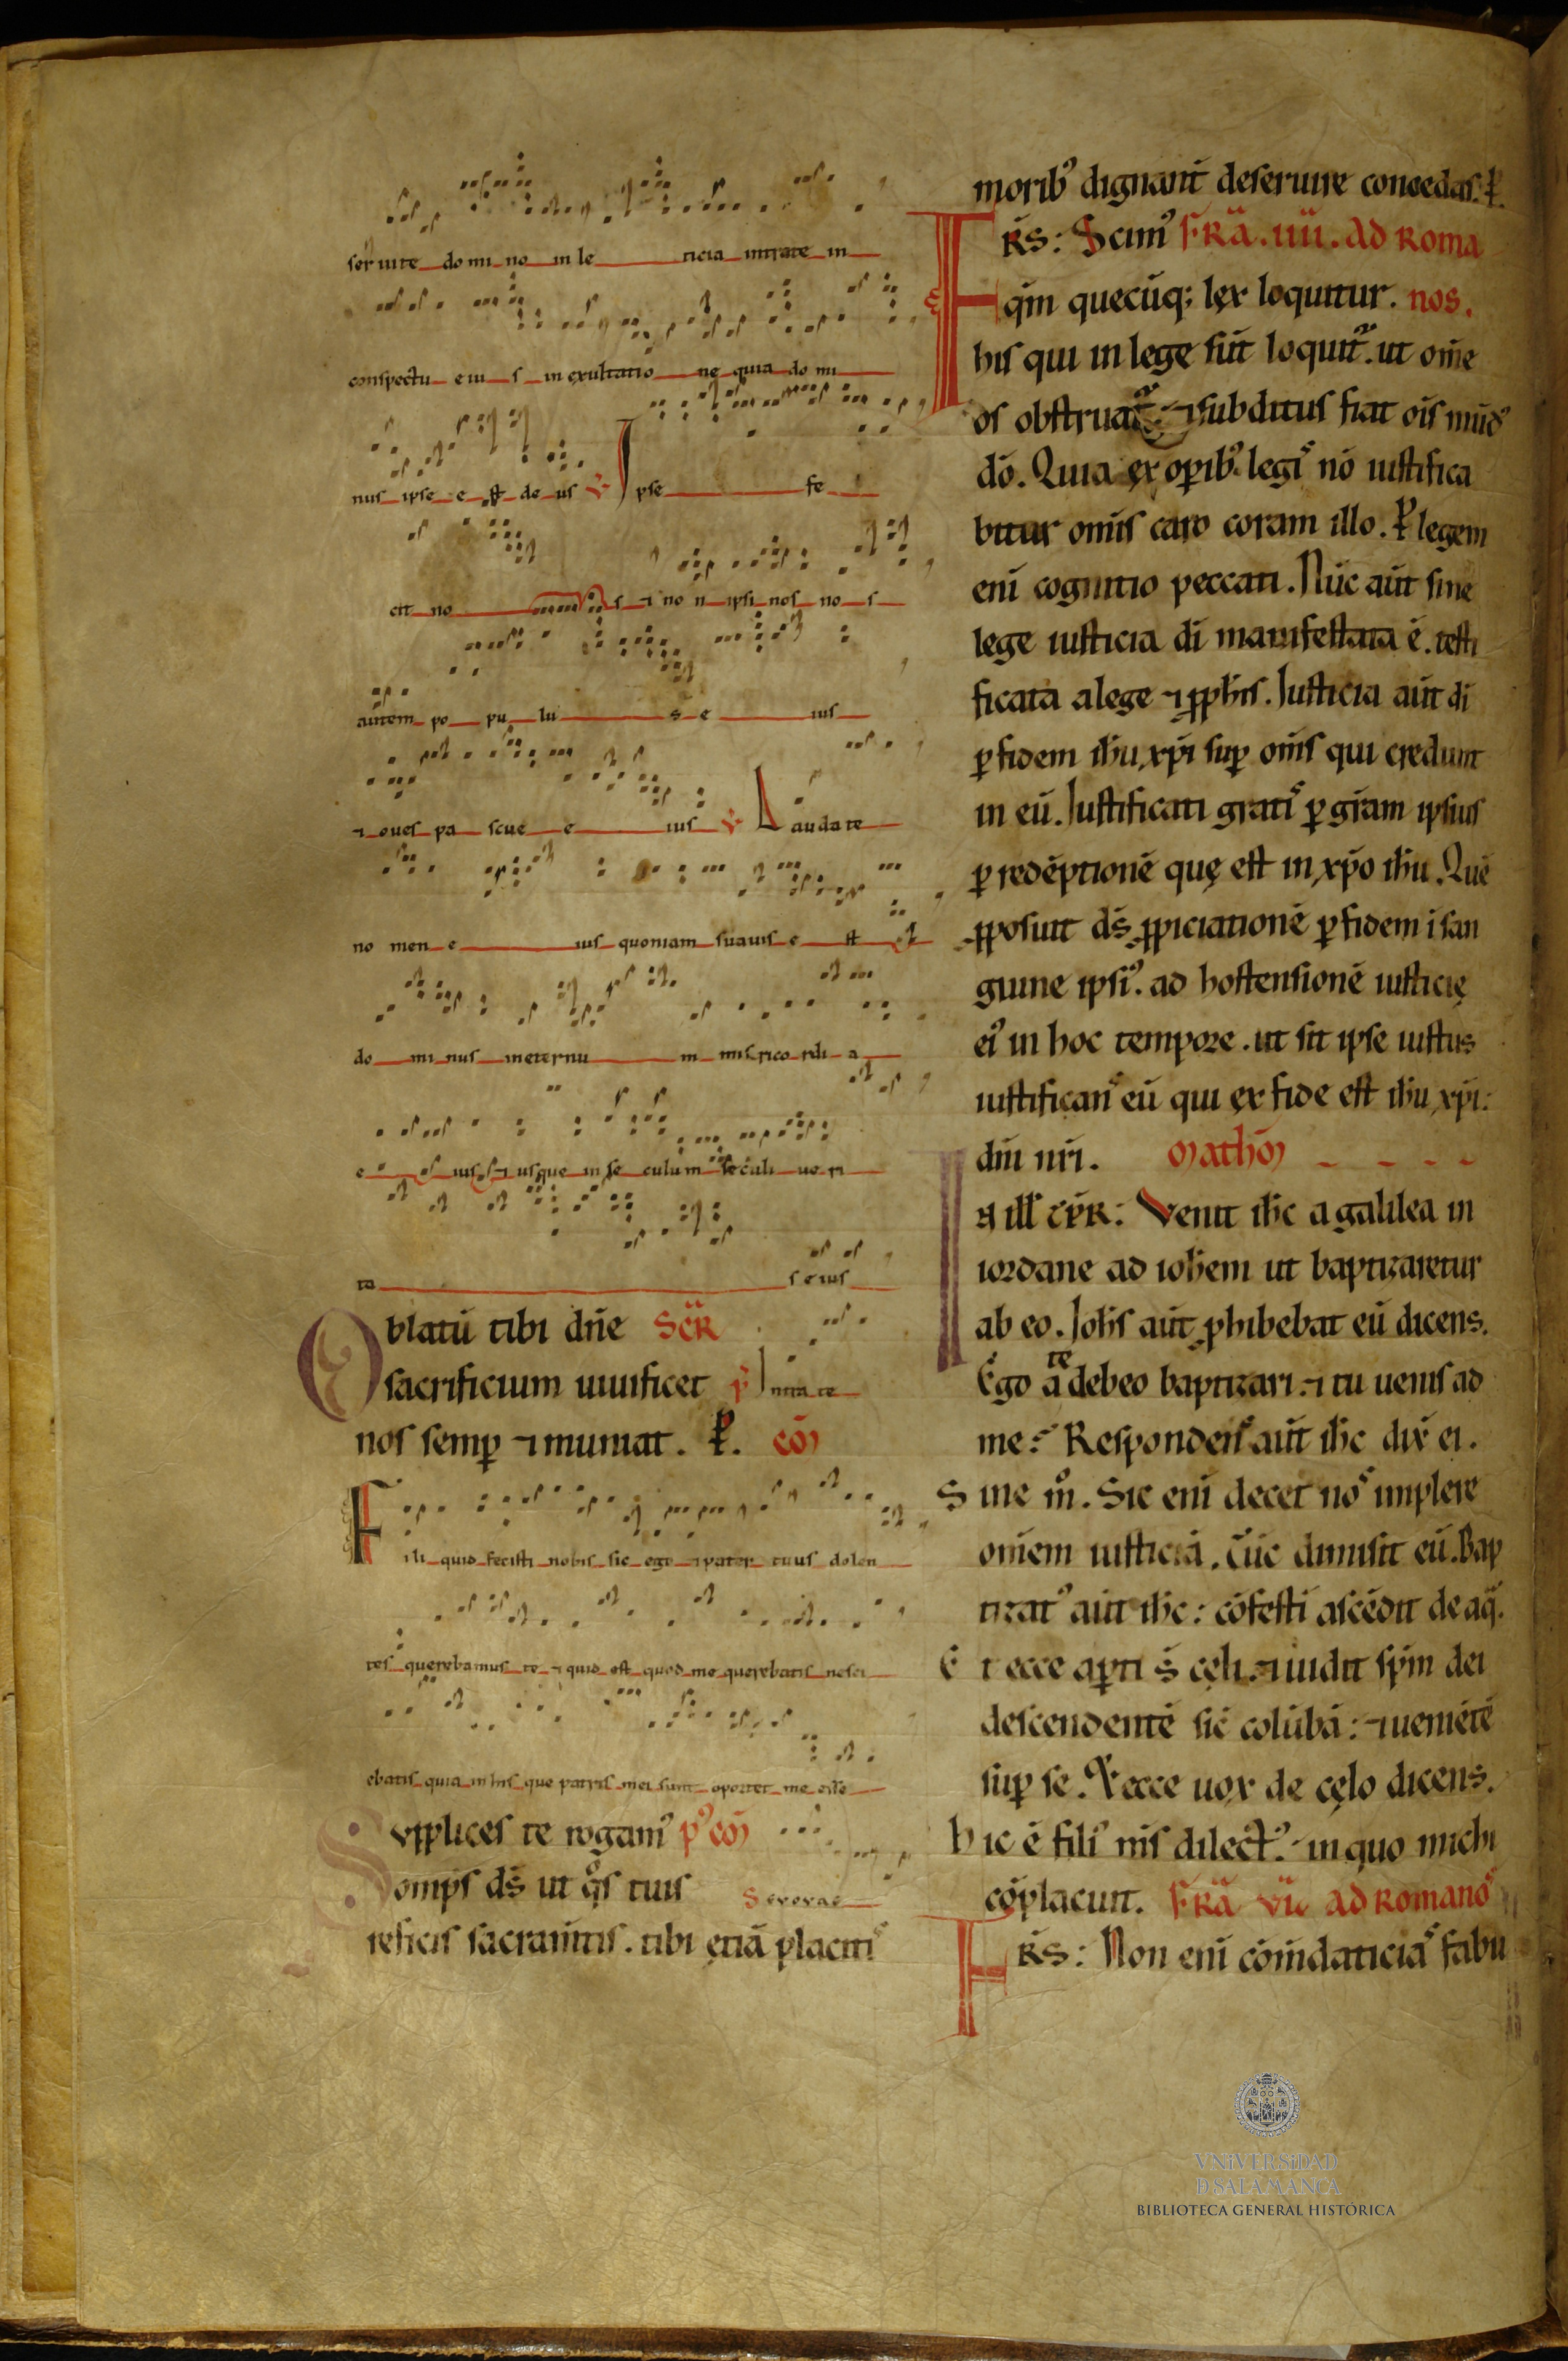 seruite domino in leticia intrate in
conspectu eius in exultatione quia domi
nus ipse est deus ℣ Ipse fe
cit nos ⁊ non ipsi nos nos
autem populus eius
⁊ oues pascue eius ℣ Laudate
nomen eius quoniam suauis est
dominus in eternum misericordia
eius ⁊ usque in seculum seculi ueri
tas eius
Oblatū tibi dn̄e Scr̄
sacrificium uiuificet p̄ Intrate
nos semꝑ ⁊ muniat. P̄. cō
Fili quid fecisti nobis sic ego ⁊ pater tuus dolen
tes querebamus te ⁊ quid est quod me querebatis nesci
ebatis quia in his que patris mei sunt oportet me esse
Supplices te rogamꝰ pꝰ cō
omp̄s ds̄ ut qͦs tuis Seuouae
reficis sacram̄tis. tibi ętiā placitiˢ
moribꝰ dignant̄ deseruire concedas. P̄.
FR̄S: Scimꝰ FR̄A. IIII. AD ROMA
qm̄ quecūq; lex loquitur. nos.
his qui in lege sūt loquit᷑. ut om̄e
os obstruat᷑ ⁊ subditus fiat ois̄ mūdꝰ
dō. Quia ex oꝑibꝰ legiˢ nō iustifica
bitur omīs caro coram illo. P̄ legem
enī cognitio peccati. Nūc aūt sine
lege iusticia dī manifestata ē. testi
ficata a lege ⁊ ꝓph̄is. Iusticia aūt dī
ꝑ fidem ih̄u xp̄i suꝑ om̄s qui credunt
in eū. Iustificati gratiˢ ꝑ gr̄am ipsius
ꝑ redēptionē quę est in xp̄o ih̄u. Quē
ꝓposuit ds̄ ꝓpiciationē ꝑ fidem ī san
guine ipsiꝰ. ad hostensionē iusticię
eiꝰ in hoc tempore. ut sit ipse iustus
iustificanˢ eū qui ex fide est ih̄u xp̄i:
dn̄i nr̄i. Mathm̄
In ill̄ tp̄r: Venit ih̄c a galilea in
iordane ad ioh̄em ut baptizaretur
ab eo. Ioh̄s aūt ꝓhibebat eū dicens.
Ego a te debeo baptizari. ⁊ tu uenis ad
me: Respondenˢ aūt ih̄c dix̄ ei.
Sine mͦ. Sic enī decet noˢ implere
omēm iusticiā. Tūc dimisit eū. Bap
tizatꝰ aūt ih̄c: cōfestī ascēdit de aq̄.
Et ecce aꝑti s̄ cęli. ⁊ uidit sp̄m dei
descendentē sic̄ colūbā: ⁊ ueniētē
suꝑ se. Et ecce uox de cęlo dicens.
Hic ē filiꝰ m̄s dilectꝰ. in quo michi
cōplacuit. FR̄A VI AD ROMANOˢ
FR̄S: Non enī cōm̄daticiaˢ fabu
VNiVERSiDAD
Ð SALAMANCA
BIBLIOTECA GENERAL HISTÓRICA